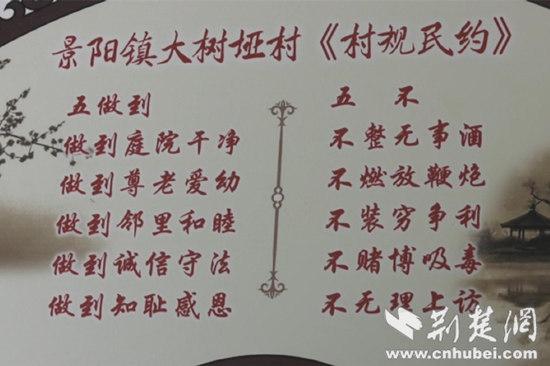 景阳镇大树垭村《村规民约》
五做到
做到庭院干净
做到尊老爱幼
做到邻里和睦
做到诚信守法
做到知耻感恩
五不
不整无事酒
不燃放鞭炮
不装穷争利
不赌博吸毒
不无理上访
荆楚網
www.cnhubei.com